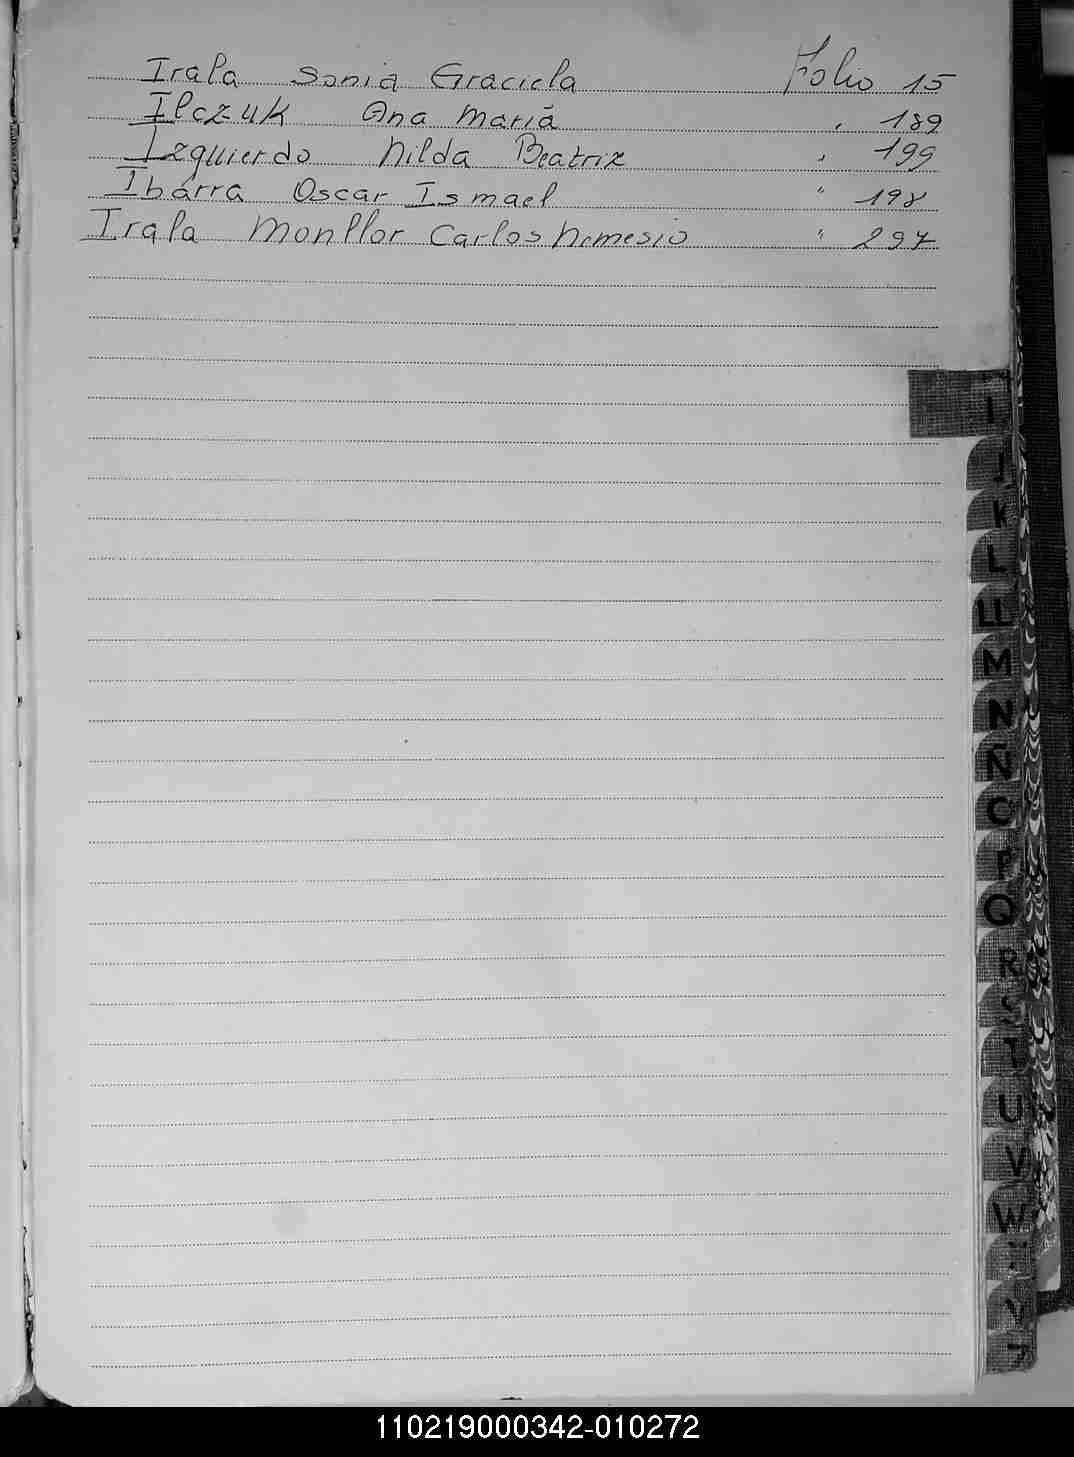 Irala Sonia Graciela Folio 15
Ilczuk Ana Mariá " 189
Izquierdo Nilda Beatriz " 199
Ibarra Oscar Ismael " 198
Irala Monllor Carlos Nemesio " 297
I
J
K
L
LL
M
N
Ñ
O
P
Q
R
S
T
U
V
W
110219000342-010272